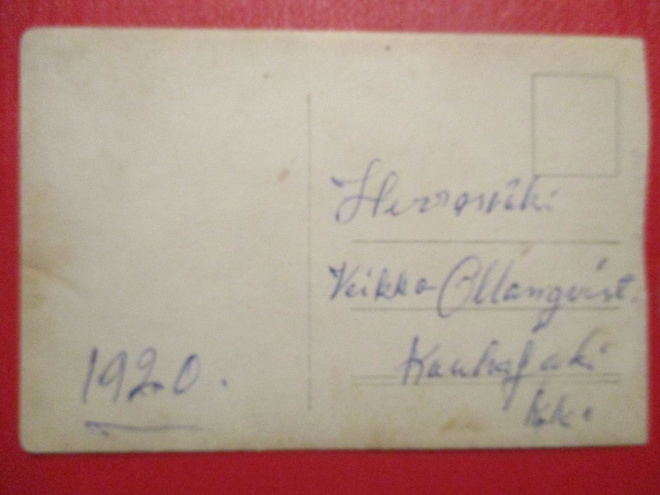 Herrasväki
Veikko Ollonqvist.
Kauhajoki
kk.
1920.